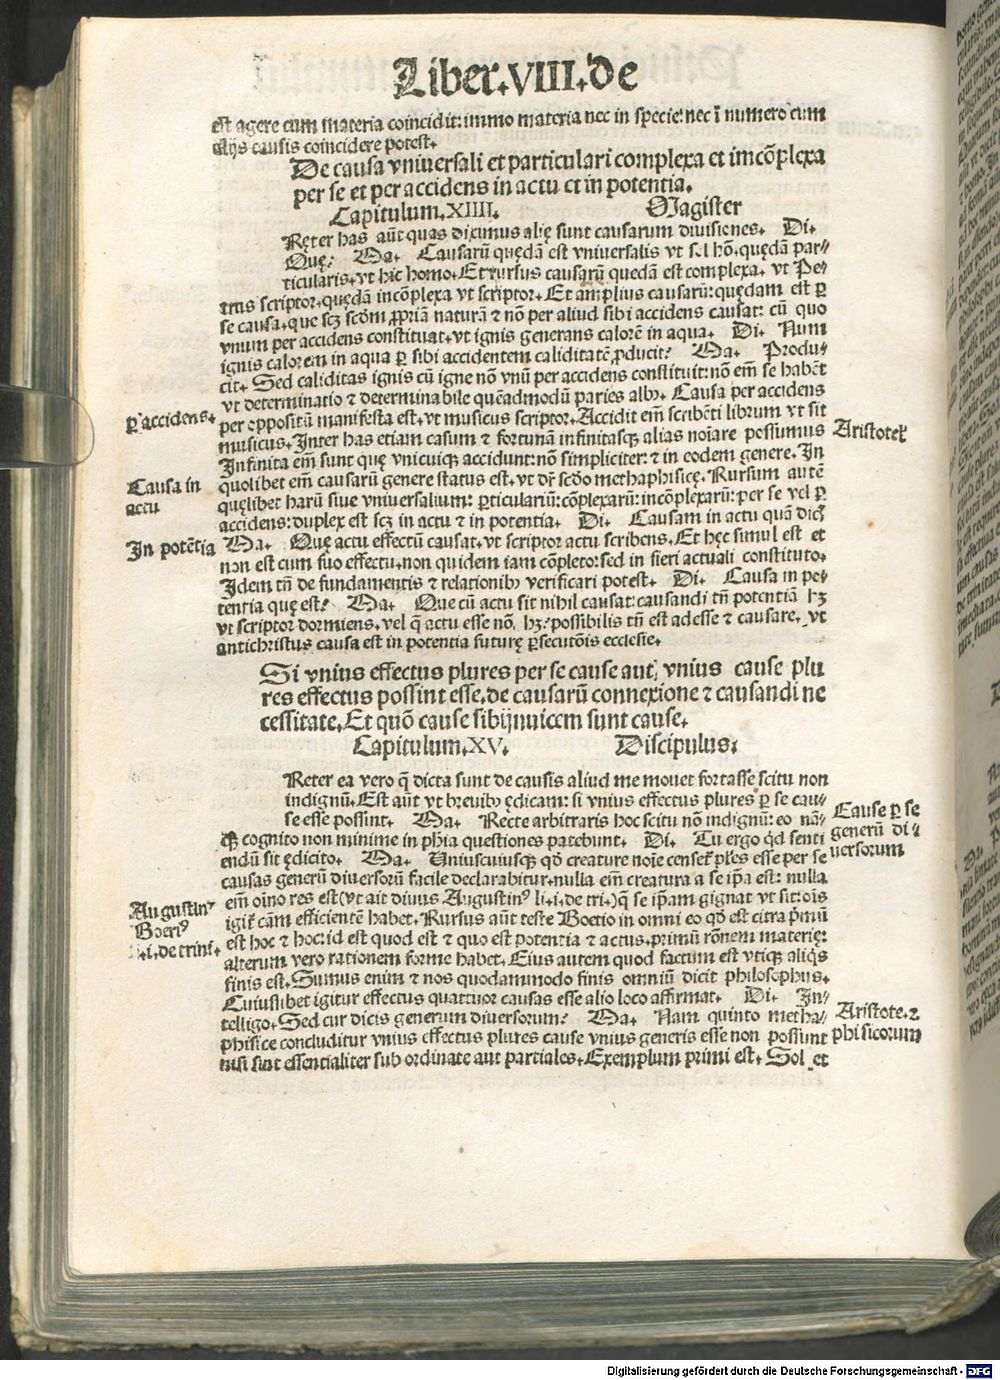 Liber.VIII.de
est agere cum materia coincidit: immo materia nec in specie: nec ĩ numero cum
alijs causis coincidere potest.
De causa vniuersali et particulari complexa et imcõplexa
per se et per accidens in actu et in potentia.
Capitulum.XIIII. Magister
Reter has aũt quas diximus alię sunt causarum diuisiones. Di.
Quę? Ma. Causarũ quędam est vniuersalis vt sel hõ. quędã par-
ticularis. vt hic homo. Et rursus causarũ quedam est complexa. vt Pe-
trus scriptor. quędã incõplexa vt scriptor. Et amplius causarũ: quędam est ꝑ
se causa. que scꝫ scðm ꝓpriã naturã ⁊ nõ per aliud sibi accidens causat: cũ quo
vnum per accidens constituat. vt ignis generans calorẽ in aqua. Di. Num
ignis calorem in aqua ꝑ sibi accidentem caliditatẽ ꝓducit? Ma. Produ-
cit. Sed caliditas ignis cũ igne nõ vnũ per accidens constituit: nõ em̃ se habẽt
vt determinatio ⁊ determinabile quẽadmodũ paries albꝰ. Causa per accidens
ꝑ accidens.
per oppositũ manifesta est. vt musicus scriptor. Accidit em̃ scribẽti librum vt sit
musicus. Inter has etiam casum ⁊ fortunã infinitasqꝫ alias noĩare possumus
Aristotel̃
Infinita em̃ sunt quę vnicuiqꝫ accidunt: nõ simpliciter: ⁊ in eodem genere. In
quolibet em̃ causarũ genere status est. vt dr̃ scðo methaphisicę. Rursum autẽ
Causa in
actu
quęlibet harũ siue vniuersalium: ꝑticulariũ: cõplexarũ: incõplexarũ: per se vel ꝑ
accidens: duplex est scꝫ in actu ⁊ in potentia. Di. Causam in actu quã dicꝭ
In potẽtia
Ma. Quę actu effectũ causat. vt scriptor actu scribens. Et hęc simul est et
non est cum suo effectu. non quidem iam cõpleto: sed in fieri actuali constituto.
Idem tñ de fundamentis ⁊ relationibꝰ verificari potest. Di. Causa in po-
tentia quę est? Ma. Que cũ actu sit nihil causat: causandi tñ potentiã hꝫ
vt scriptor dormiens. vel q̃ actu esse nõ. hꝫ: possibilis tñ est adesse ⁊ causare. vt
antichristus causa est in potentia futurę ꝑsecutõis ecclesie.
Si vnius effectus plures per se cause aut, vnius cause plu
res effectus possint esse. de causarũ connexione ⁊ causandi ne
cessitate. Et quõ cause sibijnuicem sunt cause.
Capitulum.XV. Discipulus:
Reter ea vero q̃ dicta sunt de causis aliud me mouet fortasse scitu non
indignũ. Est aũt vt breuibꝰ ędicam: si vnius effectus plures ꝑ se cau-
se esse possint. Ma. Recte arbitraris hoc scitu nõ indignũ: eo nã-
Cause ꝑ se
generũ di-
uersorum
qꝫ cognito non minime in phĩa questiones patebunt. Di. Tu ergo qͥd senti
endũ sit ędicito. Ma. Uniuscuiusqꝫ qð creature noĩe censet̃ ꝓles esse per se
causas generũ diuersorũ facile declarabitur. nulla em̃ creatura a se ip̃a est: nulla
Augustinꝰ
Boetiꝰ
li.i.de trini.
em̃ oĩno res est (vt ait diuus Augustinꝰ li.i.de tri.) q̃ se ip̃am gignat vt sit: oĩs
igit̃ cãm efficientẽ habet. Rursus aũt teste Boetio in omni eo qð est citra p̃mũ
est hoc ⁊ hoc: id est quod est ⁊ quo est potentia ⁊ actus. primũ rõnem materię:
alterum vero rationem forme habet. Eius autem quod factum est vtiqꝫ aliqͥs
finis est. Sumus enim ⁊ nos quodammodo finis omniũ dicit philosophus.
Cuiuslibet igitur effectus quattuor causas esse alio loco affirmat. Di. In-
telligo. Sed cur dicis generum diuersorum? Ma. Nam quinto metha-
Aristote.⁊
phisicorum
phisice concluditur vnius effectus plures cause vnius generis esse non possunt
nisi sint essentialiter sub ordinate aut partiales. Exemplum primi est. Sol et
Digitalisierung gefördert durch die Deutsche Forschungsgemeinschaft - DFG